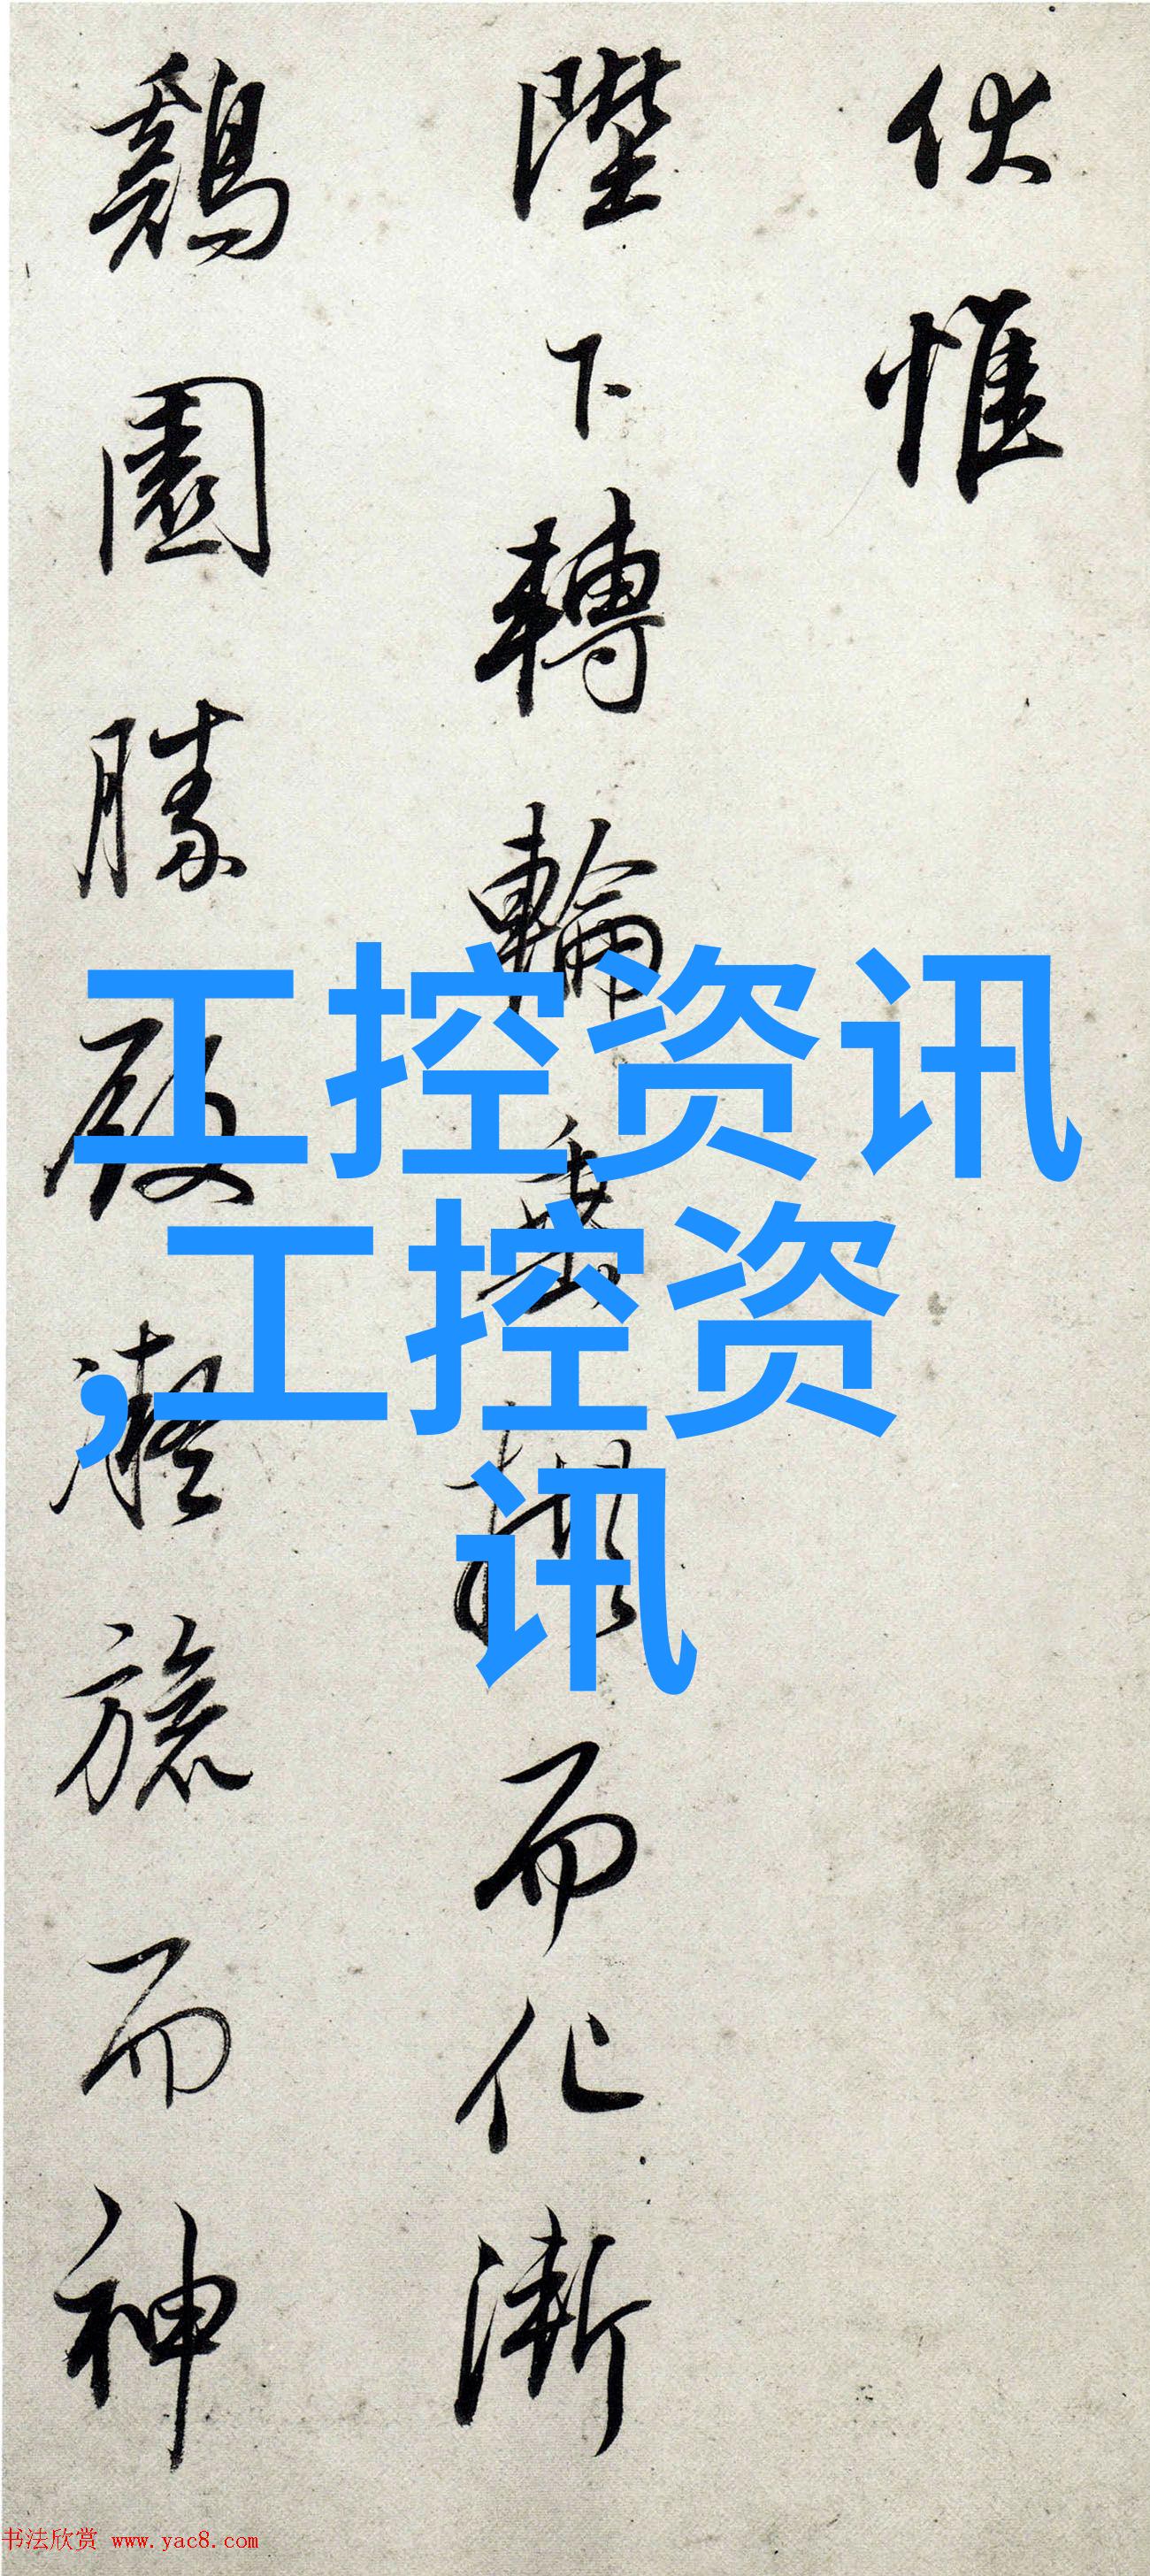 伏惟
陛下轉輪垂拱而化漸
鷄園勝殿凝旒而神
工控资讯
,工控资
讯
书法欣赏 www.yac8.com